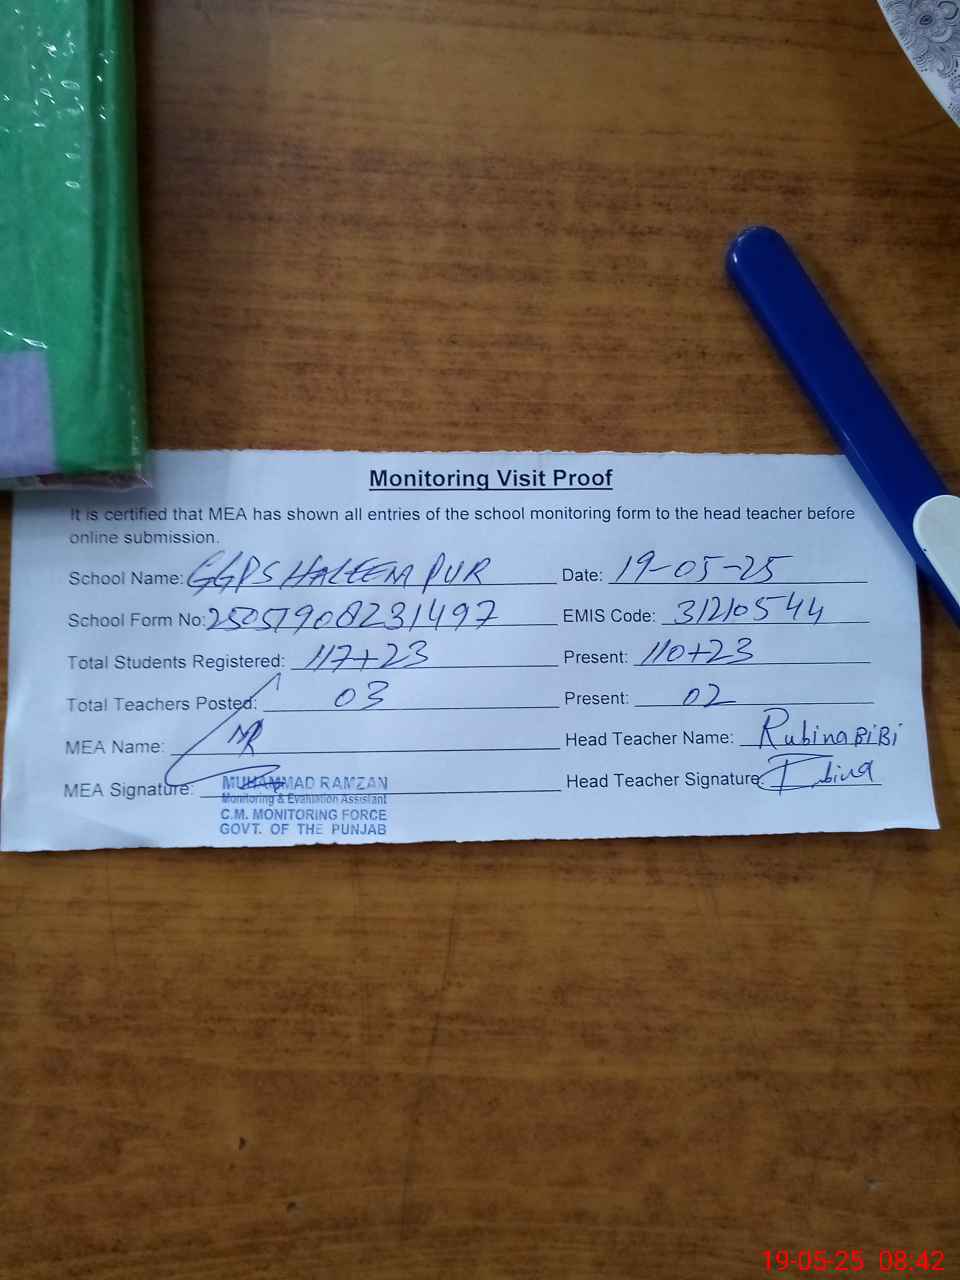 Monitoring Visit Proof
It is certified that MEA has shown all entries of the school monitoring form to the head teacher before
online submission.
School Name: GGPS HALEEM PUR Date: 19-05-25
School Form No: 25051908231497 EMIS Code: 31210544
Total Students Registered: 117+23 Present: 110+23
Total Teachers Posted: 03 Present: 02
MEA Name: MR Head Teacher Name: Rubina BiBi
MEA Signature: Head Teacher Signature
MUHAMMAD RAMZAN
Monitoring & Evaluation Assistant
C.M. MONITORING FORCE
GOVT. OF THE PUNJAB
19-05-25 08:42